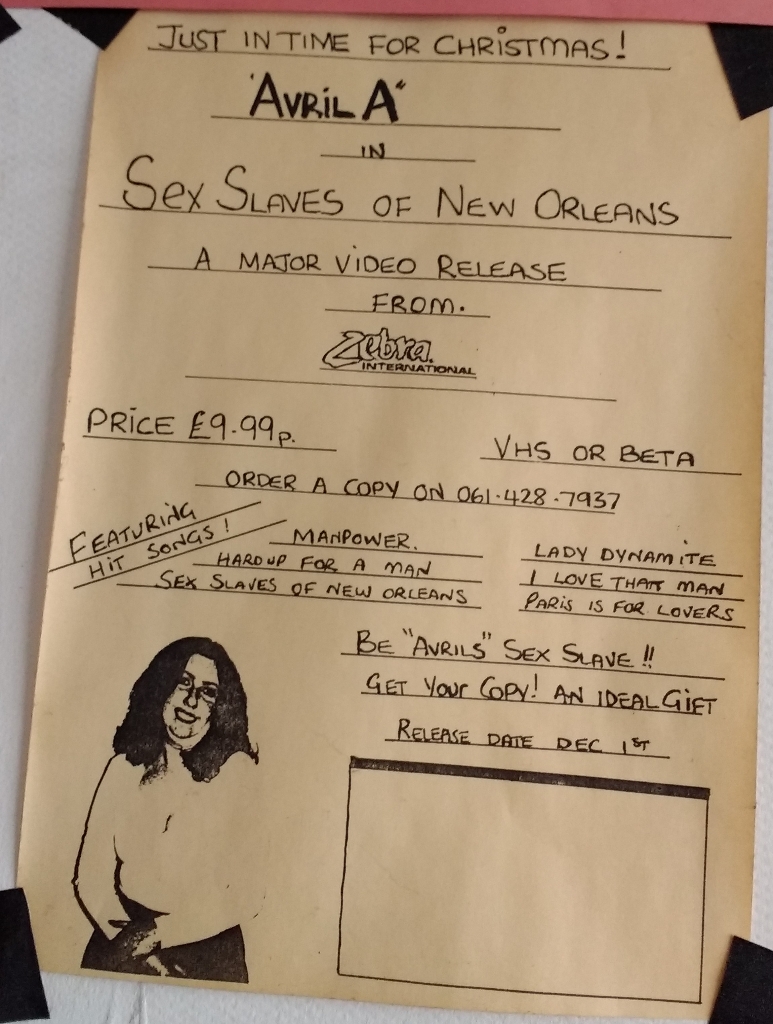 JUST IN TIME FOR CHRISTMAS!
'AVRIL A"
IN
SEX SLAVES OF NEW ORLEANS
A MAJOR VIDEO RELEASE
FROM.
Zebra
INTERNATIONAL
PRICE £9.99p.
VHS OR BETA
ORDER A COPY ON 061.428.7937
FEATURING
HIT SONGS!
MANPOWER.
HARD UP FOR A MAN
SEX SLAVES OF NEW ORLEANS
LADY DYNAMITE
I LOVE THAT MAN
PARIS IS FOR LOVERS
BE "AVRILS" SEX SLAVE!!
GET YOUR COPY! AN IDEAL GIFT
RELEASE DATE DEC 1ST